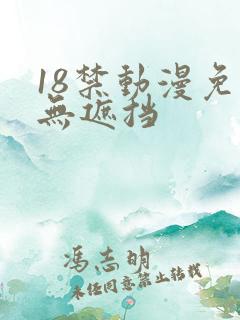 18禁動漫免
無遮挡
冯志明
未经同意禁止转载